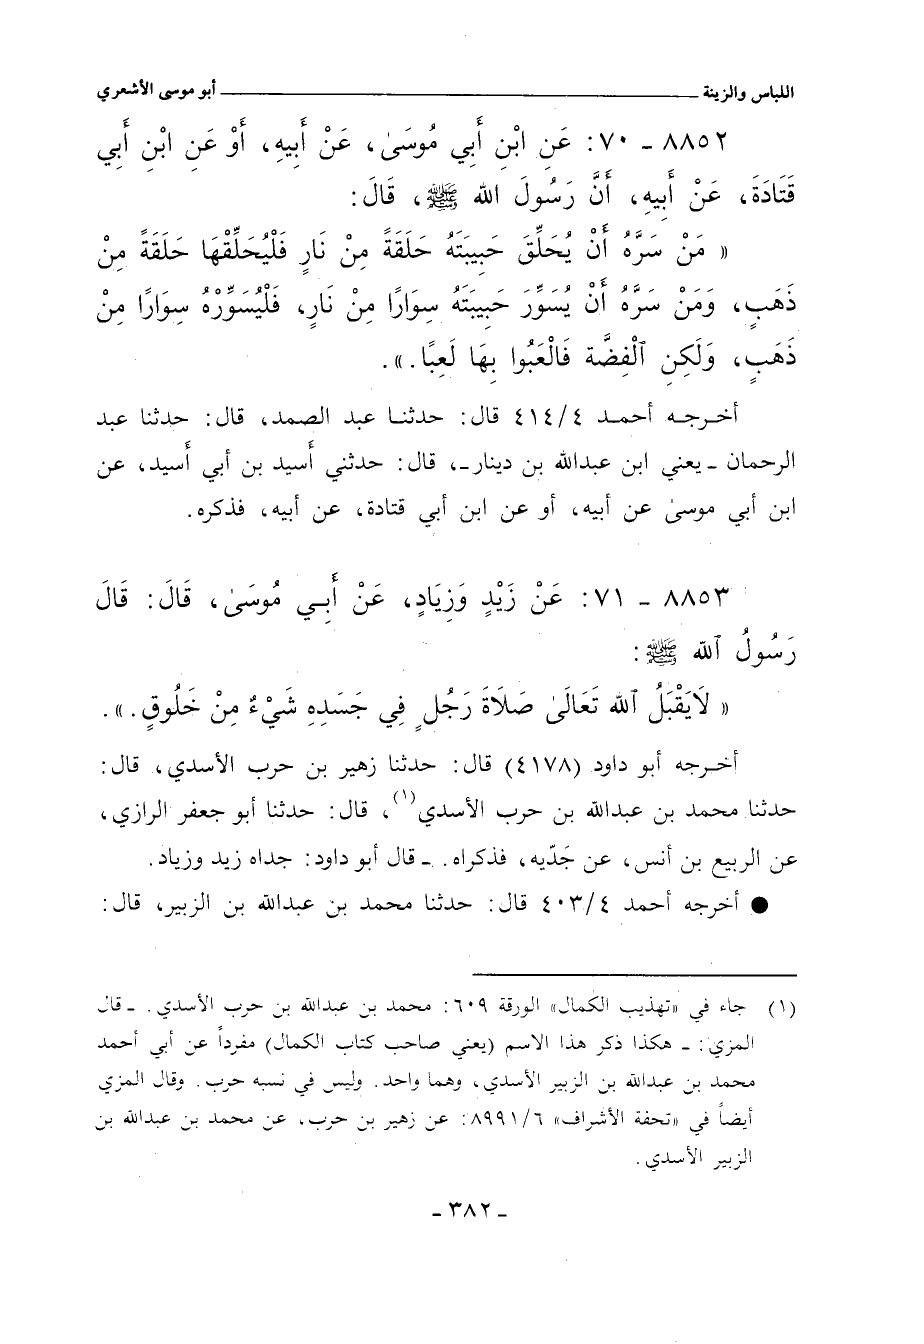 اللباس والزينة ـــــــــ أبو موسى الأشعري
٨٨٥٢ ـ ٧٠: عَنِ ابْنِ أَبِي مُوسَىٰ، عَنْ أَبِيهِ، أَوْ عَنِ ابْنِ أَبِي
قَتَادَةَ، عَنْ أَبِيهِ، أَنَّ رَسُولَ الله ﷺ، قَالَ:
« مَنْ سَرَّهُ أَنْ يُحَلِّقَ حَبِيبَتَهُ حَلَقَةً مِنْ نَارٍ فَلْيُحَلِّقْهَا حَلَقَةً مِنْ
ذَهَبٍ، وَمَنْ سَرَّهُ أَنْ يُسَوِّرَ حَبِيبَتَهُ سِوَارًا مِنْ نَارٍ، فَلْيُسَوِّرْهُ سِوَارًا مِنْ
ذَهَبٍ، وَلَكِنِ ٱلْفِضَّة فَالْعَبُوا بِهَا لَعِبًا.».
أخـرجـه أحمـد ٤١٤/٤ قال: حدثنـا عبد الصمد، قال: حدثنا عبد
الرحمان ـ يعني ابن عبدالله بن دينار ـ، قال: حدثني أَسيد بن أبي أَسيد، عن
ابن أبي موسىٰ عن أبيه، أو عن ابن أبي قتادة، عن أبيه، فذكره.
٨٨٥٣ ـ ٧١: عَنْ زَيْدٍ وَزِيَادٍ، عَنْ أَبِـي مُوسَىٰ، قَالَ: قَالَ
رَسُولُ ٱلله ﷺ:
« لَايَقْبَلُ ٱلله تَعَالَىٰ صَلَاةَ رَجُلٍ فِي جَسَدِهِ شَيْءٌ مِنْ خَلُوقٍ.».
أخـرجه أبو داود (٤١٧٨) قال: حدثنا زهير بن حرب الأسدي، قال:
حدثنا محمد بن عبدالله بن حرب الأسدي(١)، قال: حدثنا أبو جعفر الرازي،
عن الربيع بن أنس، عن جَدّيه، فذكراه. ـ قال أبو داود: جداه زيد وزياد.
● أخرجه أحمد ٤٠٣/٤ قال: حدثنا محمد بن عبدالله بن الزبير، قال:
(١) جاء في «تهذيب الكمال» الورقة ٦٠٩: محمد بن عبدالله بن حرب الأسدي. ـ قال
المزي: ـ هكذا ذكر هذا الاسم (يعني صاحب كتاب الكمال) مفرداً عن أبي أحمد
محمد بن عبدالله بن الزبير الأسدي، وهما واحد. وليس في نسبه حرب. وقال المزي
أيضاً في «تحفة الأشراف» ٨٩٩١/٦: عن زهير بن حرب، عن محمد بن عبدالله بن
الزبير الأسدي.
ـ ٣٨٢ ـ